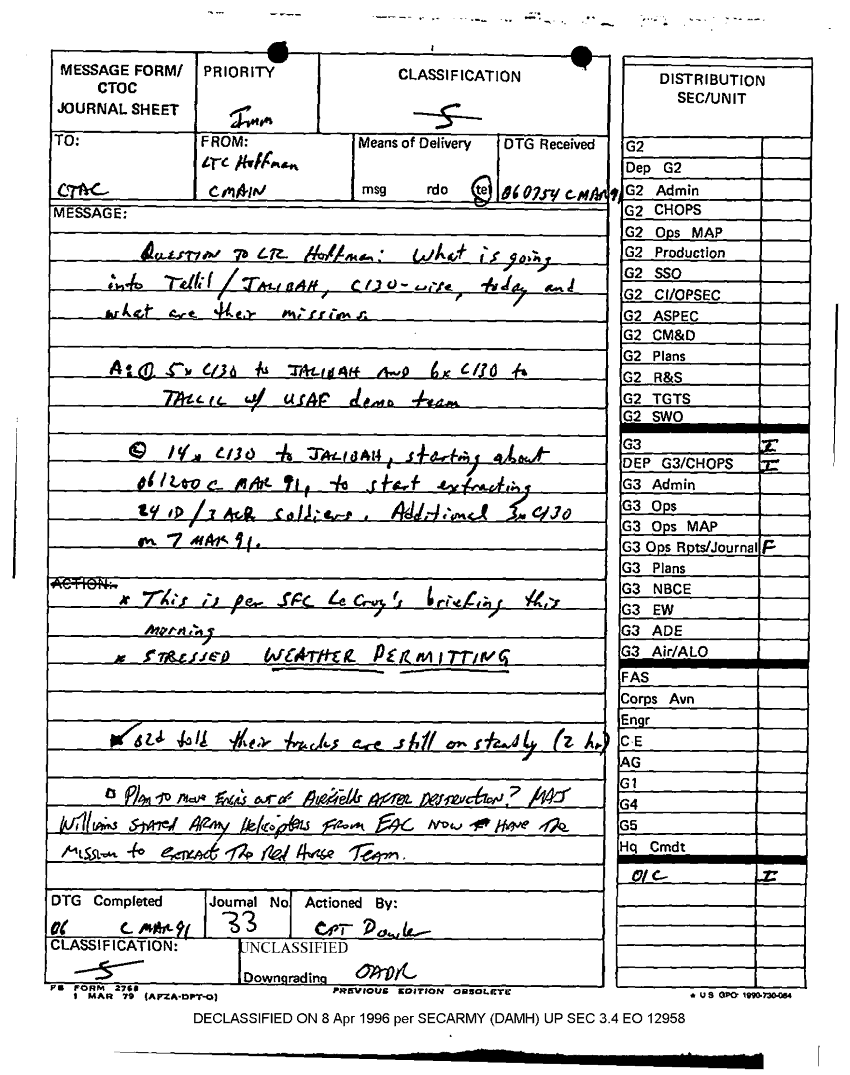 MESSAGE FORM/
CTOC
JOURNAL SHEET
PRIORITY
Imm
CLASSIFICATION
S
TO:
CTAC
FROM:
LTC Hoffman
CMAIN
Means of Delivery
msg rdo tel
DTG Received
060754 C MAR 91
MESSAGE:
QUESTION TO LTC Hoffman: What is going
into Tellil/JALIBAH, C130-wise, today and
what are their missions.
A: ① 5x C130 to JALIBAH AND 6x C130 to
TALLIL w/ USAF demo team
② 14x C130 to JALIBAH, starting about
061200 C MAR 91, to start extracting
24 ID/3 ACR soldiers. Additional 3x C130
on 7 MAR 91.
ACTION:
* This is per SFC LeCroy's briefing this
morning
* STRESSED WEATHER PERMITTING
82d told their tracks are still on standby (2 hr)
PLAN TO MOVE ENGRS OUT OF AIRFIELDS AFTER DESTRUCTION? MAJ
Williams STATED ARMY Helicopters FROM EAC NOW HAVE THE
MISSION to extract The Red Horse Team.
DTG Completed
06 C MAR 91
Journal No
33
Actioned By:
CPT Dowler
CLASSIFICATION:
S
UNCLASSIFIED
Downgrading OADR
FB FORM 2768
1 MAR 79 (AFZA-DPT-O)
PREVIOUS EDITION OBSOLETE
DISTRIBUTION
SEC/UNIT
G2
Dep G2
G2 Admin
G2 CHOPS
G2 Ops MAP
G2 Production
G2 SSO
G2 CI/OPSEC
G2 ASPEC
G2 CM&D
G2 Plans
G2 R&S
G2 TGTS
G2 SWO
G3 I
DEP G3/CHOPS I
G3 Admin
G3 Ops
G3 Ops MAP
G3 Ops Rpts/Journal F
G3 Plans
G3 NBCE
G3 EW
G3 ADE
G3 Air/ALO
FAS
Corps Avn
Engr
C E
AG
G1
G4
G5
Hq Cmdt
OIC I
* US GPO: 1990-730-084
DECLASSIFIED ON 8 Apr 1996 per SECARMY (DAMH) UP SEC 3.4 EO 12958